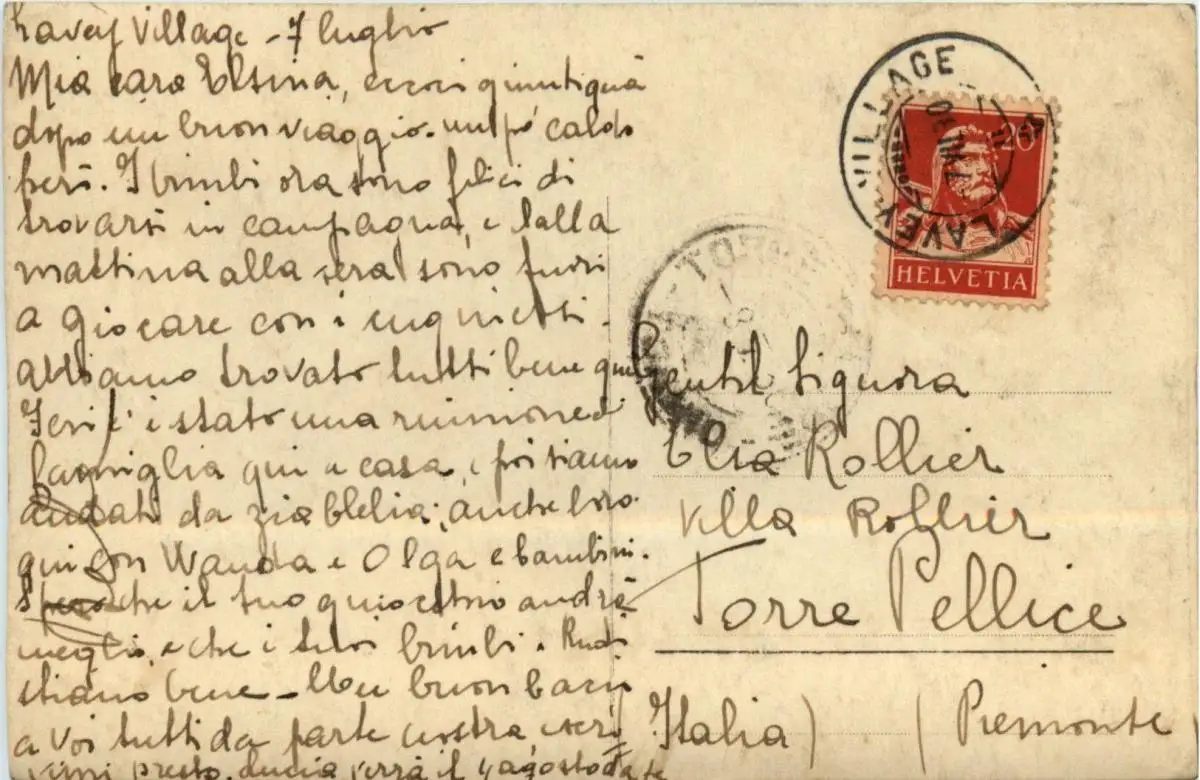 Lavey Village - 7 luglio
Mia cara Elsina, eccoci qui
dopo un buon viaggio. un po' caldo
però. I bimbi ora sono felici di
trovarsi in campagna, e dalla
mattina alla sera sono fuori
a giocare con i cuginetti.
abbiamo trovato tutti bene qui
Ieri c'è stato una riunione di
famiglia qui a casa, e poi siamo
andati da zia Clelia; anche loro
qui con Wanda e Olga e bambini.
Spero che il tuo ginocchio andrà
meglio, e che i tuoi bimbi e Rudi
stiano bene - Un buon bacio
a voi tutti da parte nostra, scri
vimi presto. Lucia verrà il 4 agosto da te
LAVEY-VILLAGE
20
HELVETIA
Gentil Signora
Elsa Rollier
Villa Rollier
Torre Pellice
Italia) (Piemonte